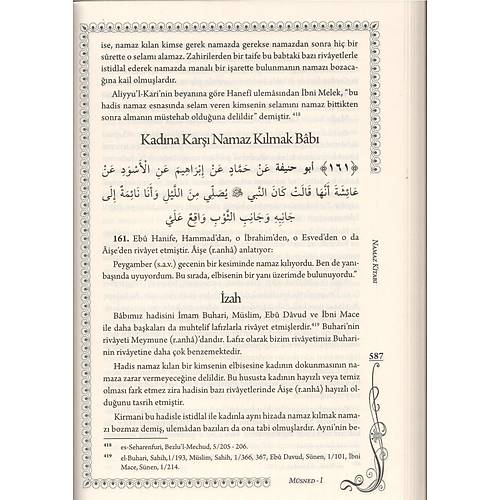 ise, namaz kılan kimse gerek namazda gerekse namazdan sonra hiç bir
sûrette o selamı alamaz. Zahirilerden bir taife bu babtaki bazı rivâyetlerle
istidlal ederek namazda manalı bir işarette bulunmanın namazı bozaca-
ğına kail olmuşlardır.
Aliyyu'l-Kari'nin beyanına göre Hanefî ulemâsından İbni Melek, “bu
hadis namaz esnasında selam veren kimsenin selamını namaz bittikten
sonra almanın müstehab olduğuna delildir” demiştir. 418
Kadına Karşı Namaz Kılmak Bâbı
﴿١٦١﴾ أبو حنيفة عَنْ حَمَّادٍ عَنْ إِبْرَاهِيمَ عَنِ الْأَسْوَدِ عَنْ
عَائِشَةَ أَنَّهَا قَالَتْ كَانَ النَّبِي ﷺ يُصَلِّي مِنَ اللَّيْلِ وَأَنَا نَائِمَةٌ إِلَى
جَانِبِهِ وَجَانِبُ الثَّوْبِ وَاقِعٌ عَلَيَّ
161. Ebû Hanife, Hammad'dan, o İbrahim'den, o Esved'den o da
Âişe'den rivâyet etmiştir. Âişe (r.anhâ) anlatıyor:
Peygamber (s.a.v.) gecenin bir kesiminde namaz kılıyordu. Ben de yanı-
başında uyuyordum. Bu sırada, elbisenin bir yanı üzerimde bulunuyordu.”
İzah
Bâbımız hadisini İmam Buhari, Müslim, Ebû Dâvud ve İbni Mace
ile daha başkaları da muhtelif lafızlarla rivâyet etmişlerdir.419 Buhari'nin
rivâyeti Meymune (r.anhâ)'dandır. Lafız olarak bizim rivâyetimiz Buhari-
nin rivâyetine daha çok benzemektedir.
Hadis namaz kılan bir kimsenin elbisesine kadının dokunmasının na-
maza zarar vermeyeceğine delildir. Bu hususta kadının hayızlı veya temiz
olması fark etmez zira hadisin bazı rivâyetlerinde Âişe (r.anhâ) hayızlı ol-
duğunu tasrih etmiştir.
Kirmani bu hadisle istidlal ile kadınla aynı hizada namaz kılmak nama-
zı bozmaz demiş, ulemâdan bazıları da ona tabi olmuşlardır. Ayni'nin be-
418 es-Seharenfuri, Bezlu'l-Mechud, 5/205 - 206.
419 el-Buhari, Sahih,1/193, Müslim, Sahih, 1/366, 367, Ebû Davud, Sünen, 1/101, İbni
Mace, Sünen, 1/214.
NAMAZ KİTABI
587
MÜSNED - I